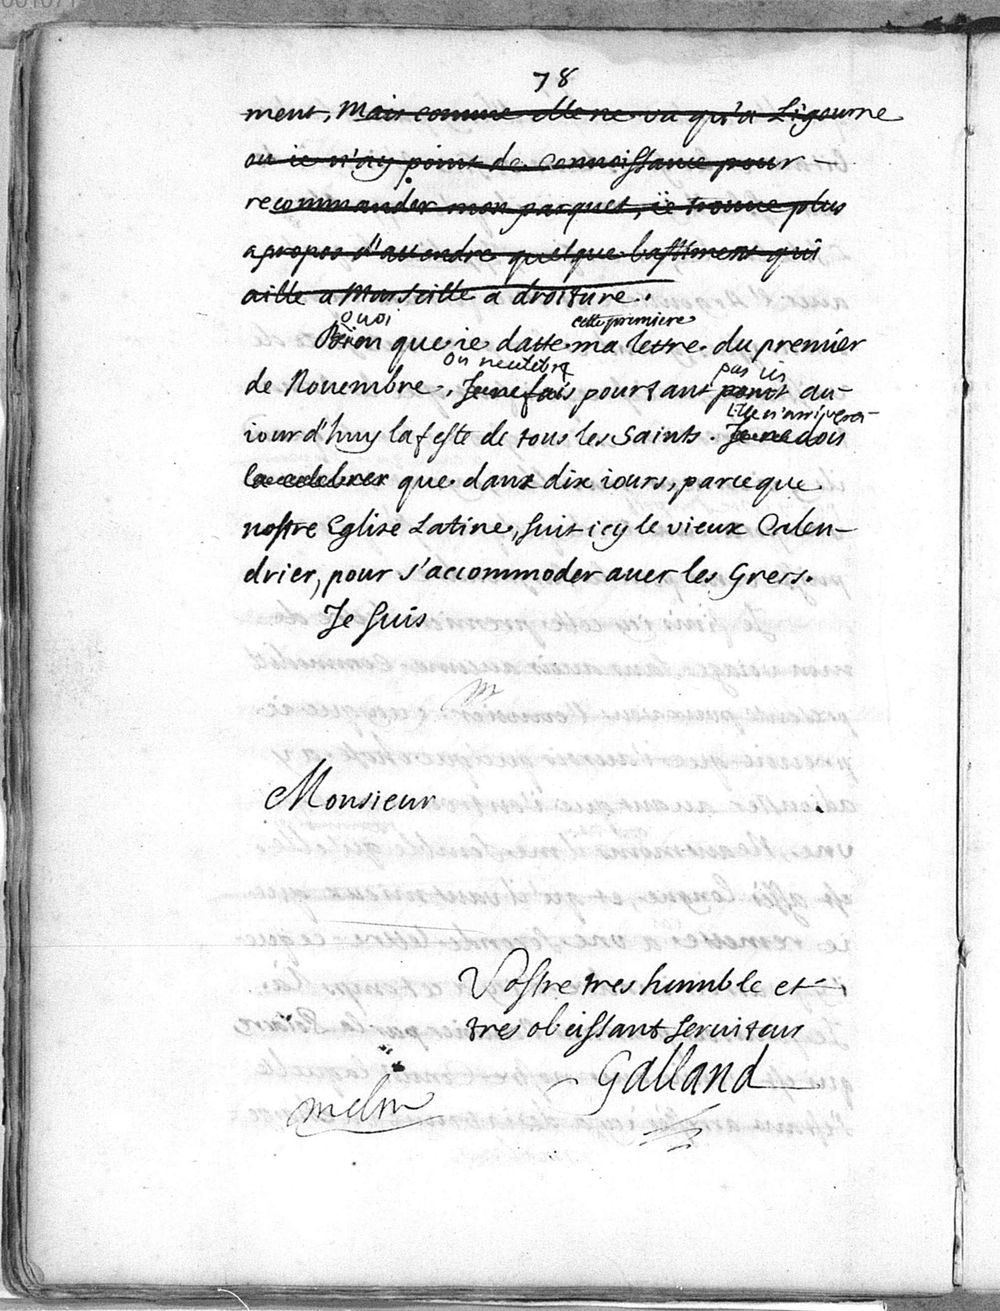 78
ment, Mais comme elle ne va qu'a Ligourne
ou ie n'ay point de connoissance pour
recommander mon pacquet, ie trouue plus
apropos d'attendre quelque bastiment qui
aille a Marseille a droiture.
quoi cette premiere
Bien que ie datte ma lettre du premier
on ne celebre pas ici
de Nouembre, Je ne fais pourtant point au-
Elle n'arrivera
iourd'huy la feste de tous les Saints. Je ne dois
la celebrer que dans dix iours, parce que
nostre Eglise Latine, suit icy le vieux Calen-
drier, pour s'accommoder auec les Grecs.
Je suis
Monsieur
Vostre tres humble et
tres obeissant seruiteur
Galland